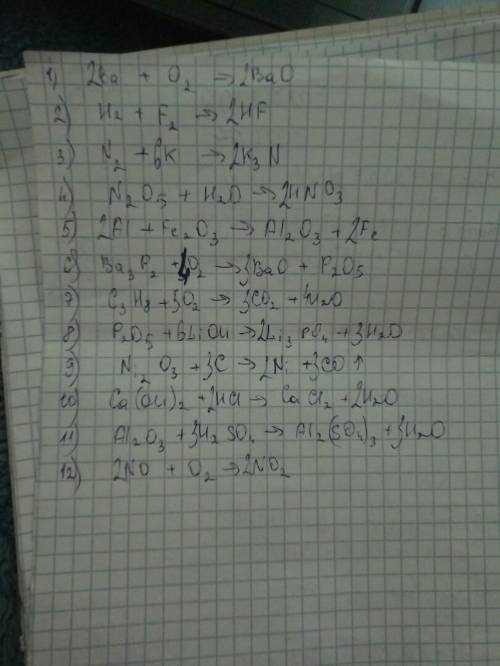 1) 2Ba + O₂ → 2BaO
2) H₂ + F₂ → 2HF
3) N₂ + 6K → 2K₃N
4) N₂O₅ + H₂O → 2HNO₃
5) 2Al + Fe₂O₃ → Al₂O₃ + 2Fe
6) Ba₃P₂ + 4O₂ → 3BaO + P₂O₅
7) C₃H₈ + 5O₂ → 3CO₂ + 4H₂O
8) P₂O₅ + 6LiOH → 2Li₃PO₄ + 3H₂O
9) Ni₂O₃ + 3C → 2Ni + 3CO↑
10) Ca(OH)₂ + 2HCl → CaCl₂ + 2H₂O
11) Al₂O₃ + 3H₂SO₄ → Al₂(SO₄)₃ + 3H₂O
12) 2NO + O₂ → 2NO₂